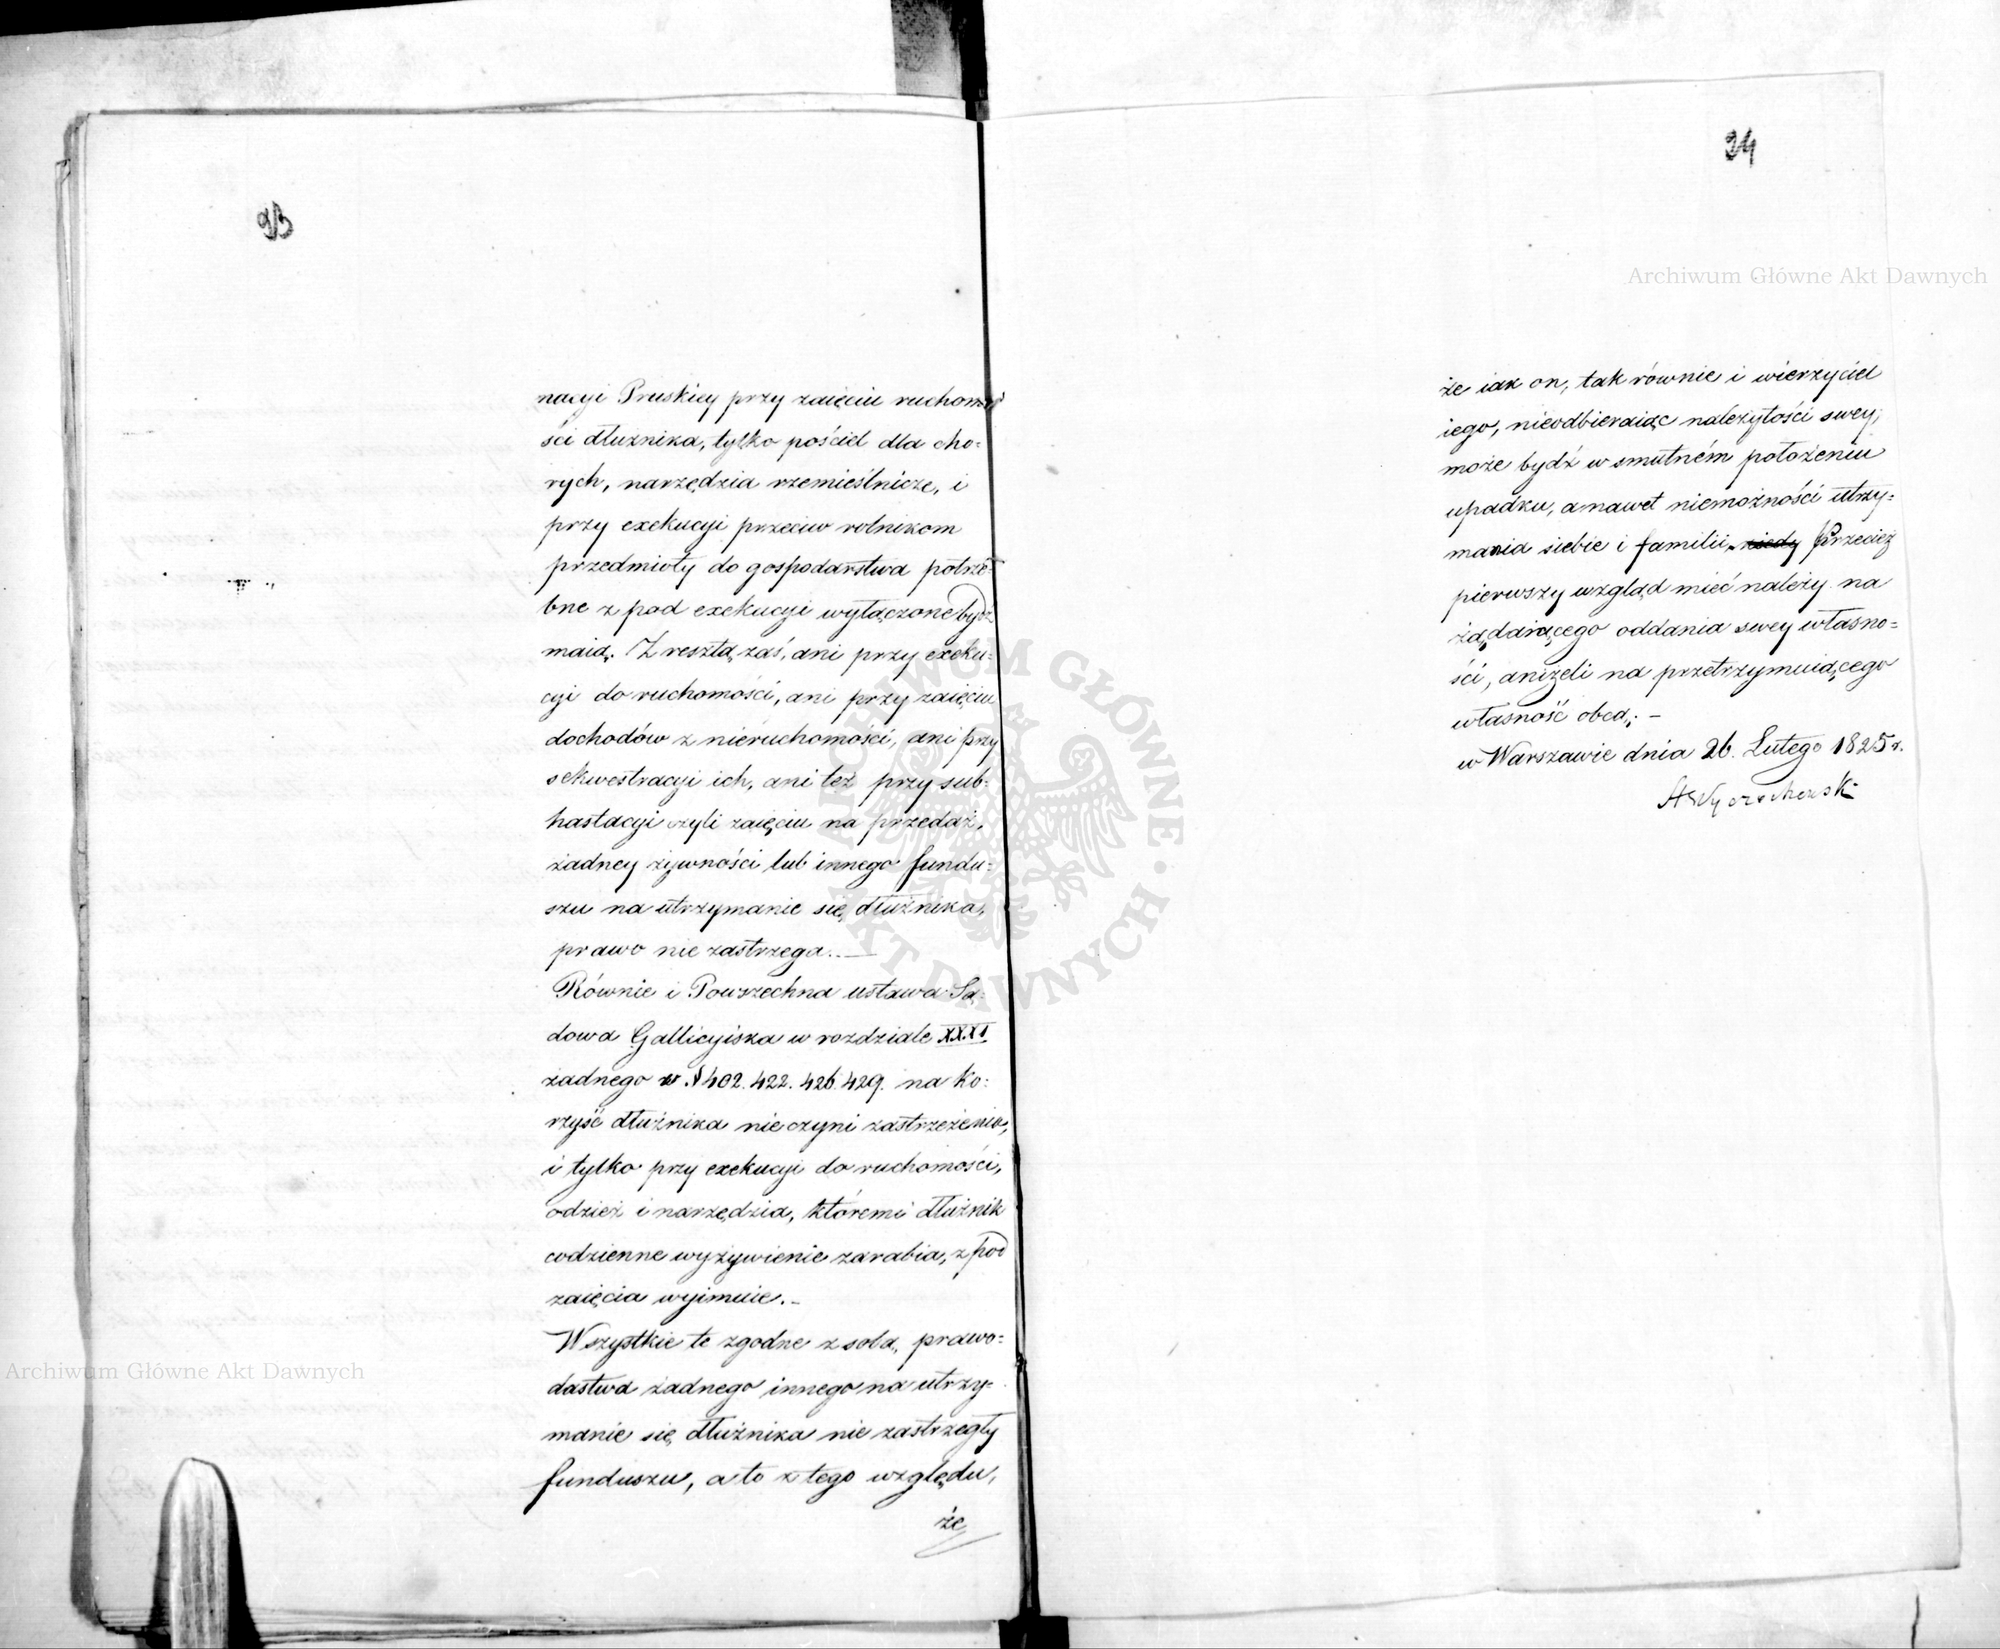 93
nacyi Pruskiey przy zaięciu ruchomo
ści dłużnika, tylko pościel dla cho=
rych, narzędzia rzemieślnicze, i
przy exekucyi przeciw rolnikom
przedmioty do gospodarstwa potrze=
bne z pod exekucyi wyłączone bydź
maią. Z resztą zaś, ani przy exeku=
cyi do ruchomości, ani przy zaięciu
dochodów z nieruchomości, ani przy
sekwestracyi ich, ani też przy sub=
hastacyi czyli zaięciu na przedaż,
żadney żywności lub innego fundu=
szu na utrzymanie się dłużnika,
prawo nie zastrzega. —
Równie i Powszechna ustawa Są=
dowa Gallicyiska w rozdziale XXXI
żadnego w § 402. 422. 426. 429. na ko=
rzyść dłużnika nie czyni zastrzeżenia,
i tylko przy exekucyi do ruchomości,
odzież i narzędzia, któremi dłużnik
codzienne wyżywienie zarabia, z pod
zaięcia wyimuie. —
Wszystkie te zgodne z sobą, prawo=
dastwa żadnego innego na utrzy=
manie się dłużnika nie zastrzegły
funduszu, a to z tego względu,
że
94
że iak on, tak równie i wierzyciel
iego, nieodbieraiąc należytości swey,
może bydź w smutném położeniu
upadku, a nawet niemożności utrzy=
mania siebie i familii, kiedy Przecież
pierwszy wzgląd mieć należy na
żądaiącego oddania swey własno=
ści, aniżeli na przetrzymuiącego
własność obcą. —
w Warszawie dnia 26. Lutego 1825 r.
AWyczechowski
Archiwum Główne Akt Dawnych
Archiwum Główne Akt Dawnych
ARCHIWUM GŁÓWNE · AKT DAWNYCH ·